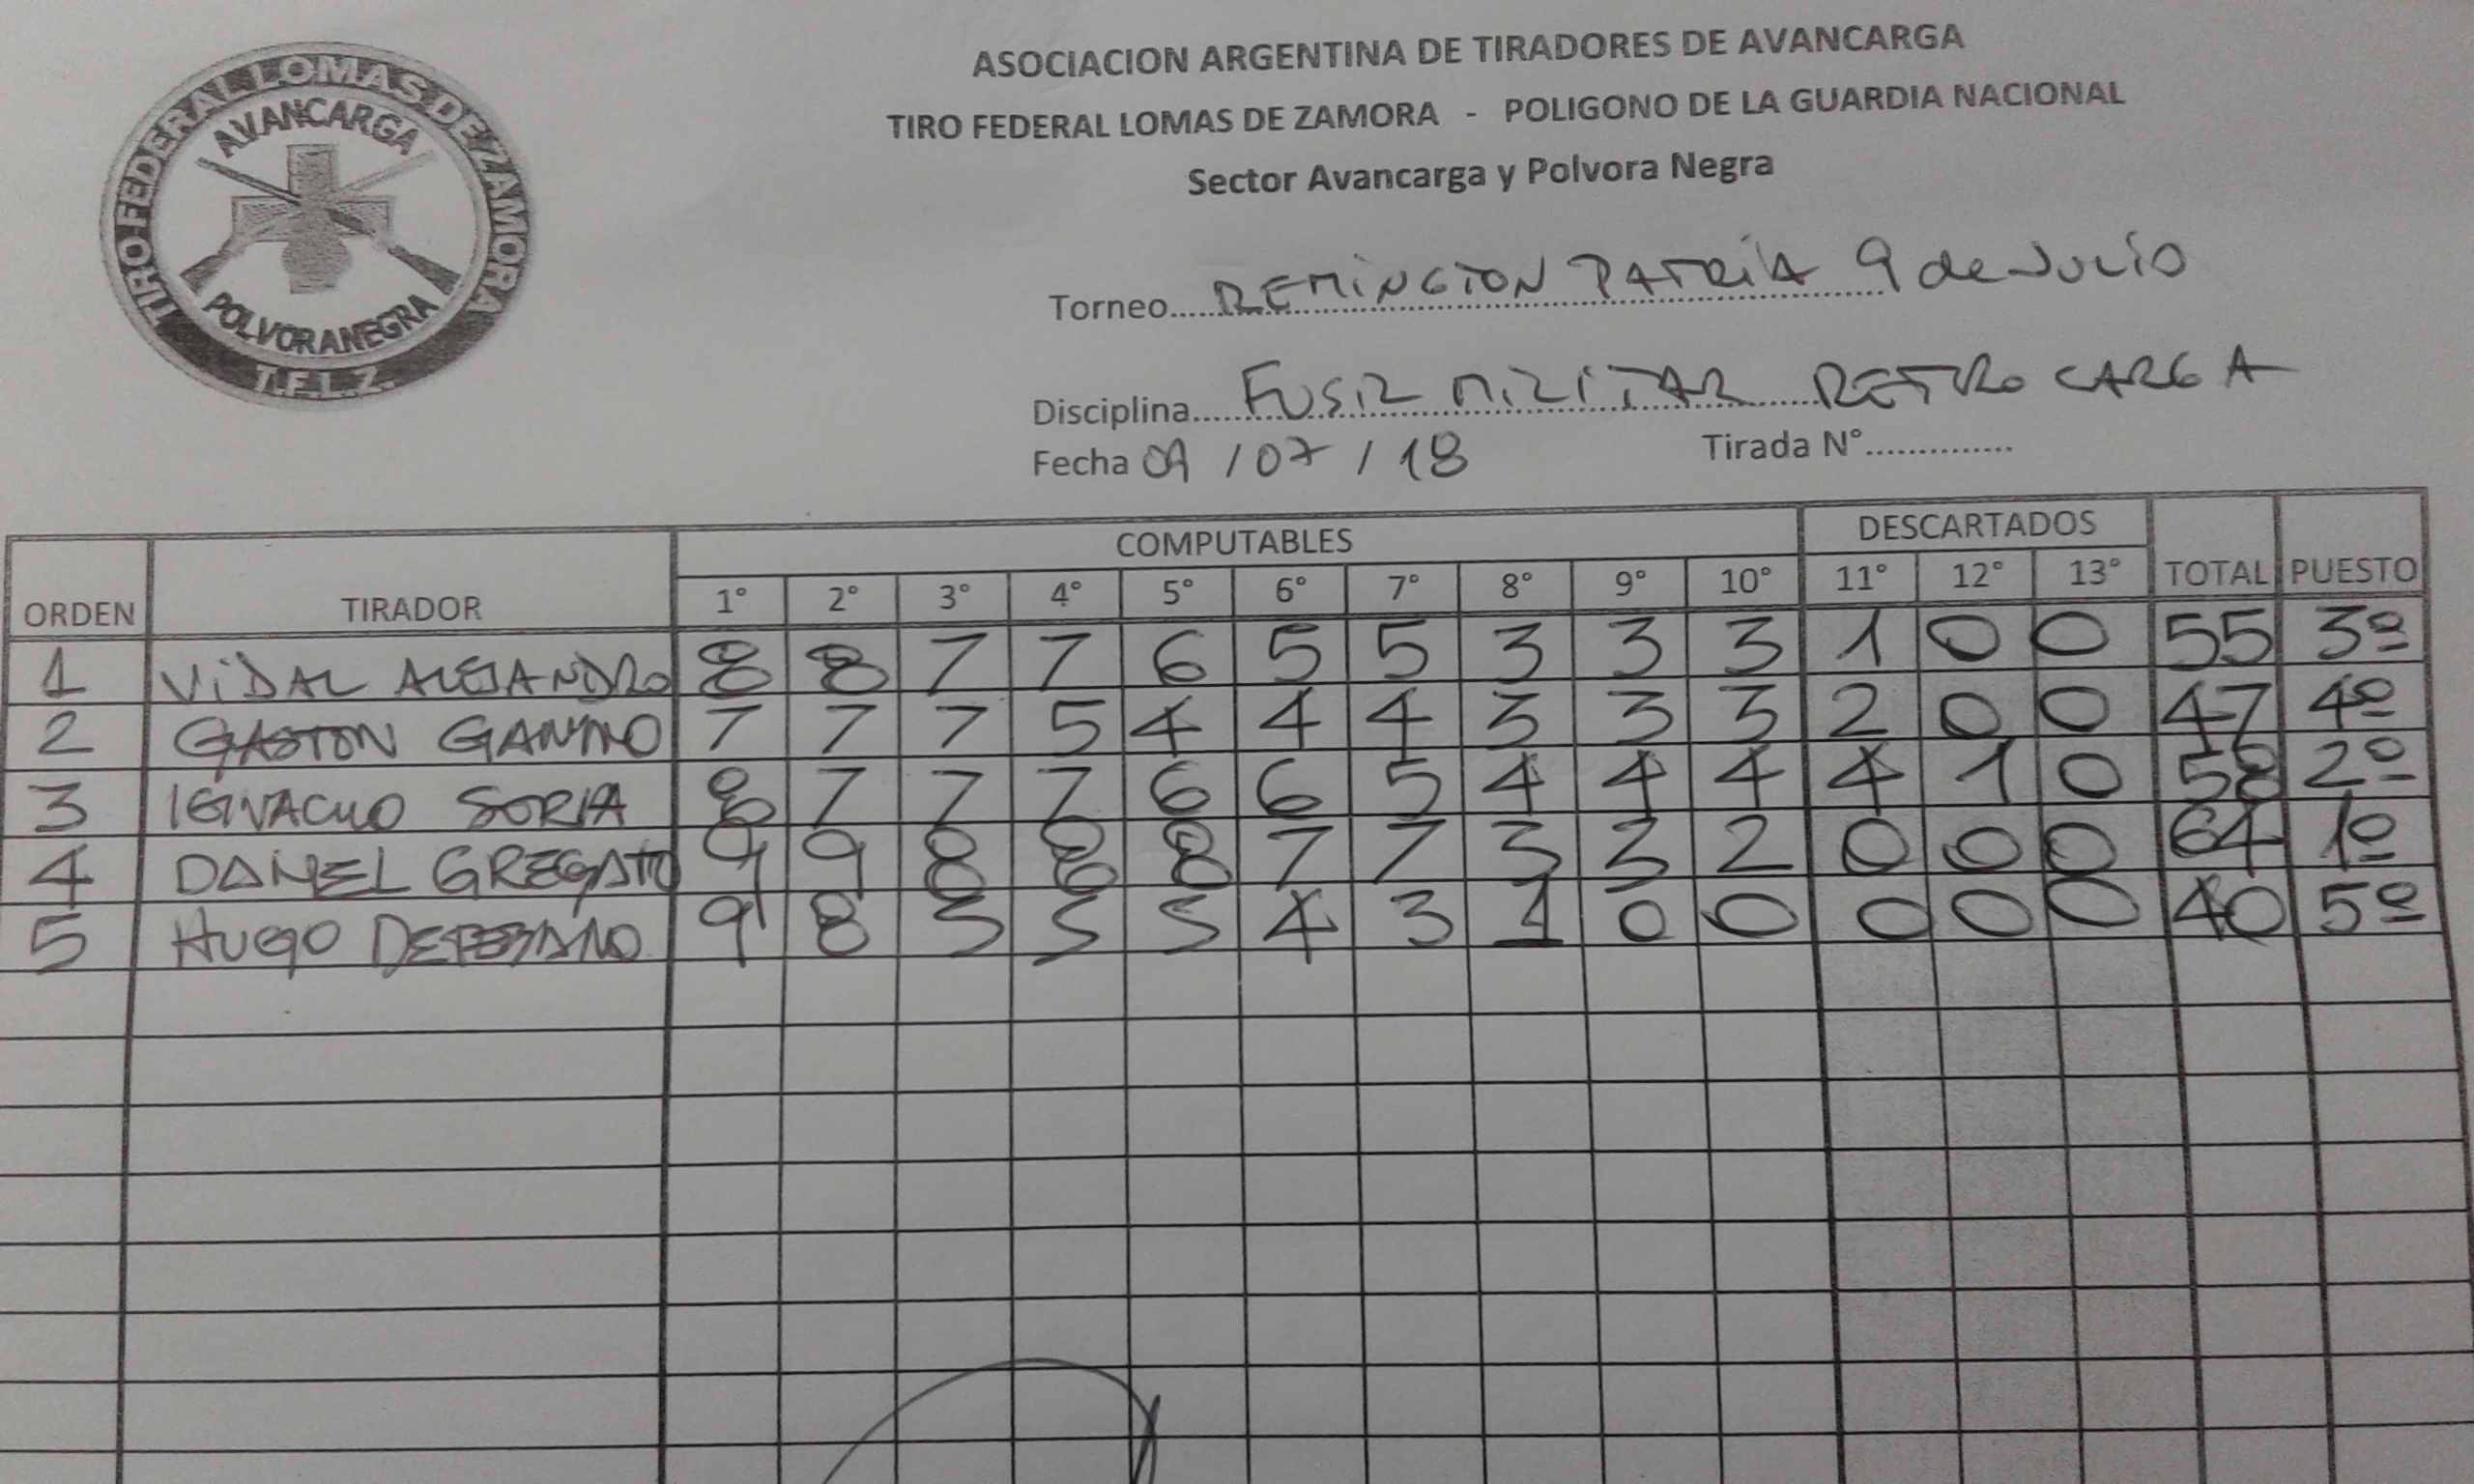 TIRO FEDERAL LOMAS DE ZAMORA
AVANCARGA
POLVORANEGRA
T.F.L.Z.
ASOCIACION ARGENTINA DE TIRADORES DE AVANCARGA
TIRO FEDERAL LOMAS DE ZAMORA - POLIGONO DE LA GUARDIA NACIONAL
Sector Avancarga y Polvora Negra
Torneo REMINGTON PATRIA 9 de JULIO
Disciplina FUSIL MILITAR RETRO CARGA
Fecha 09 / 07 / 18 Tirada N°
ORDEN TIRADOR COMPUTABLES DESCARTADOS TOTAL PUESTO
1° 2° 3° 4° 5° 6° 7° 8° 9° 10° 11° 12° 13°
1 VIDAL ALEJANDRO 8 8 7 7 6 5 5 3 3 3 1 0 0 55 3º
2 GASTON 7 7 7 5 4 4 4 3 3 3 2 0 0 47 4º
3 IGNACIO SORIA 8 7 7 7 6 6 5 4 4 4 4 1 0 58 2º
4 DANIEL GREGATO 9 9 8 8 8 7 7 3 3 2 0 0 0 64 1º
5 HUGO 9 8 5 5 5 4 3 1 0 0 0 0 0 40 5º